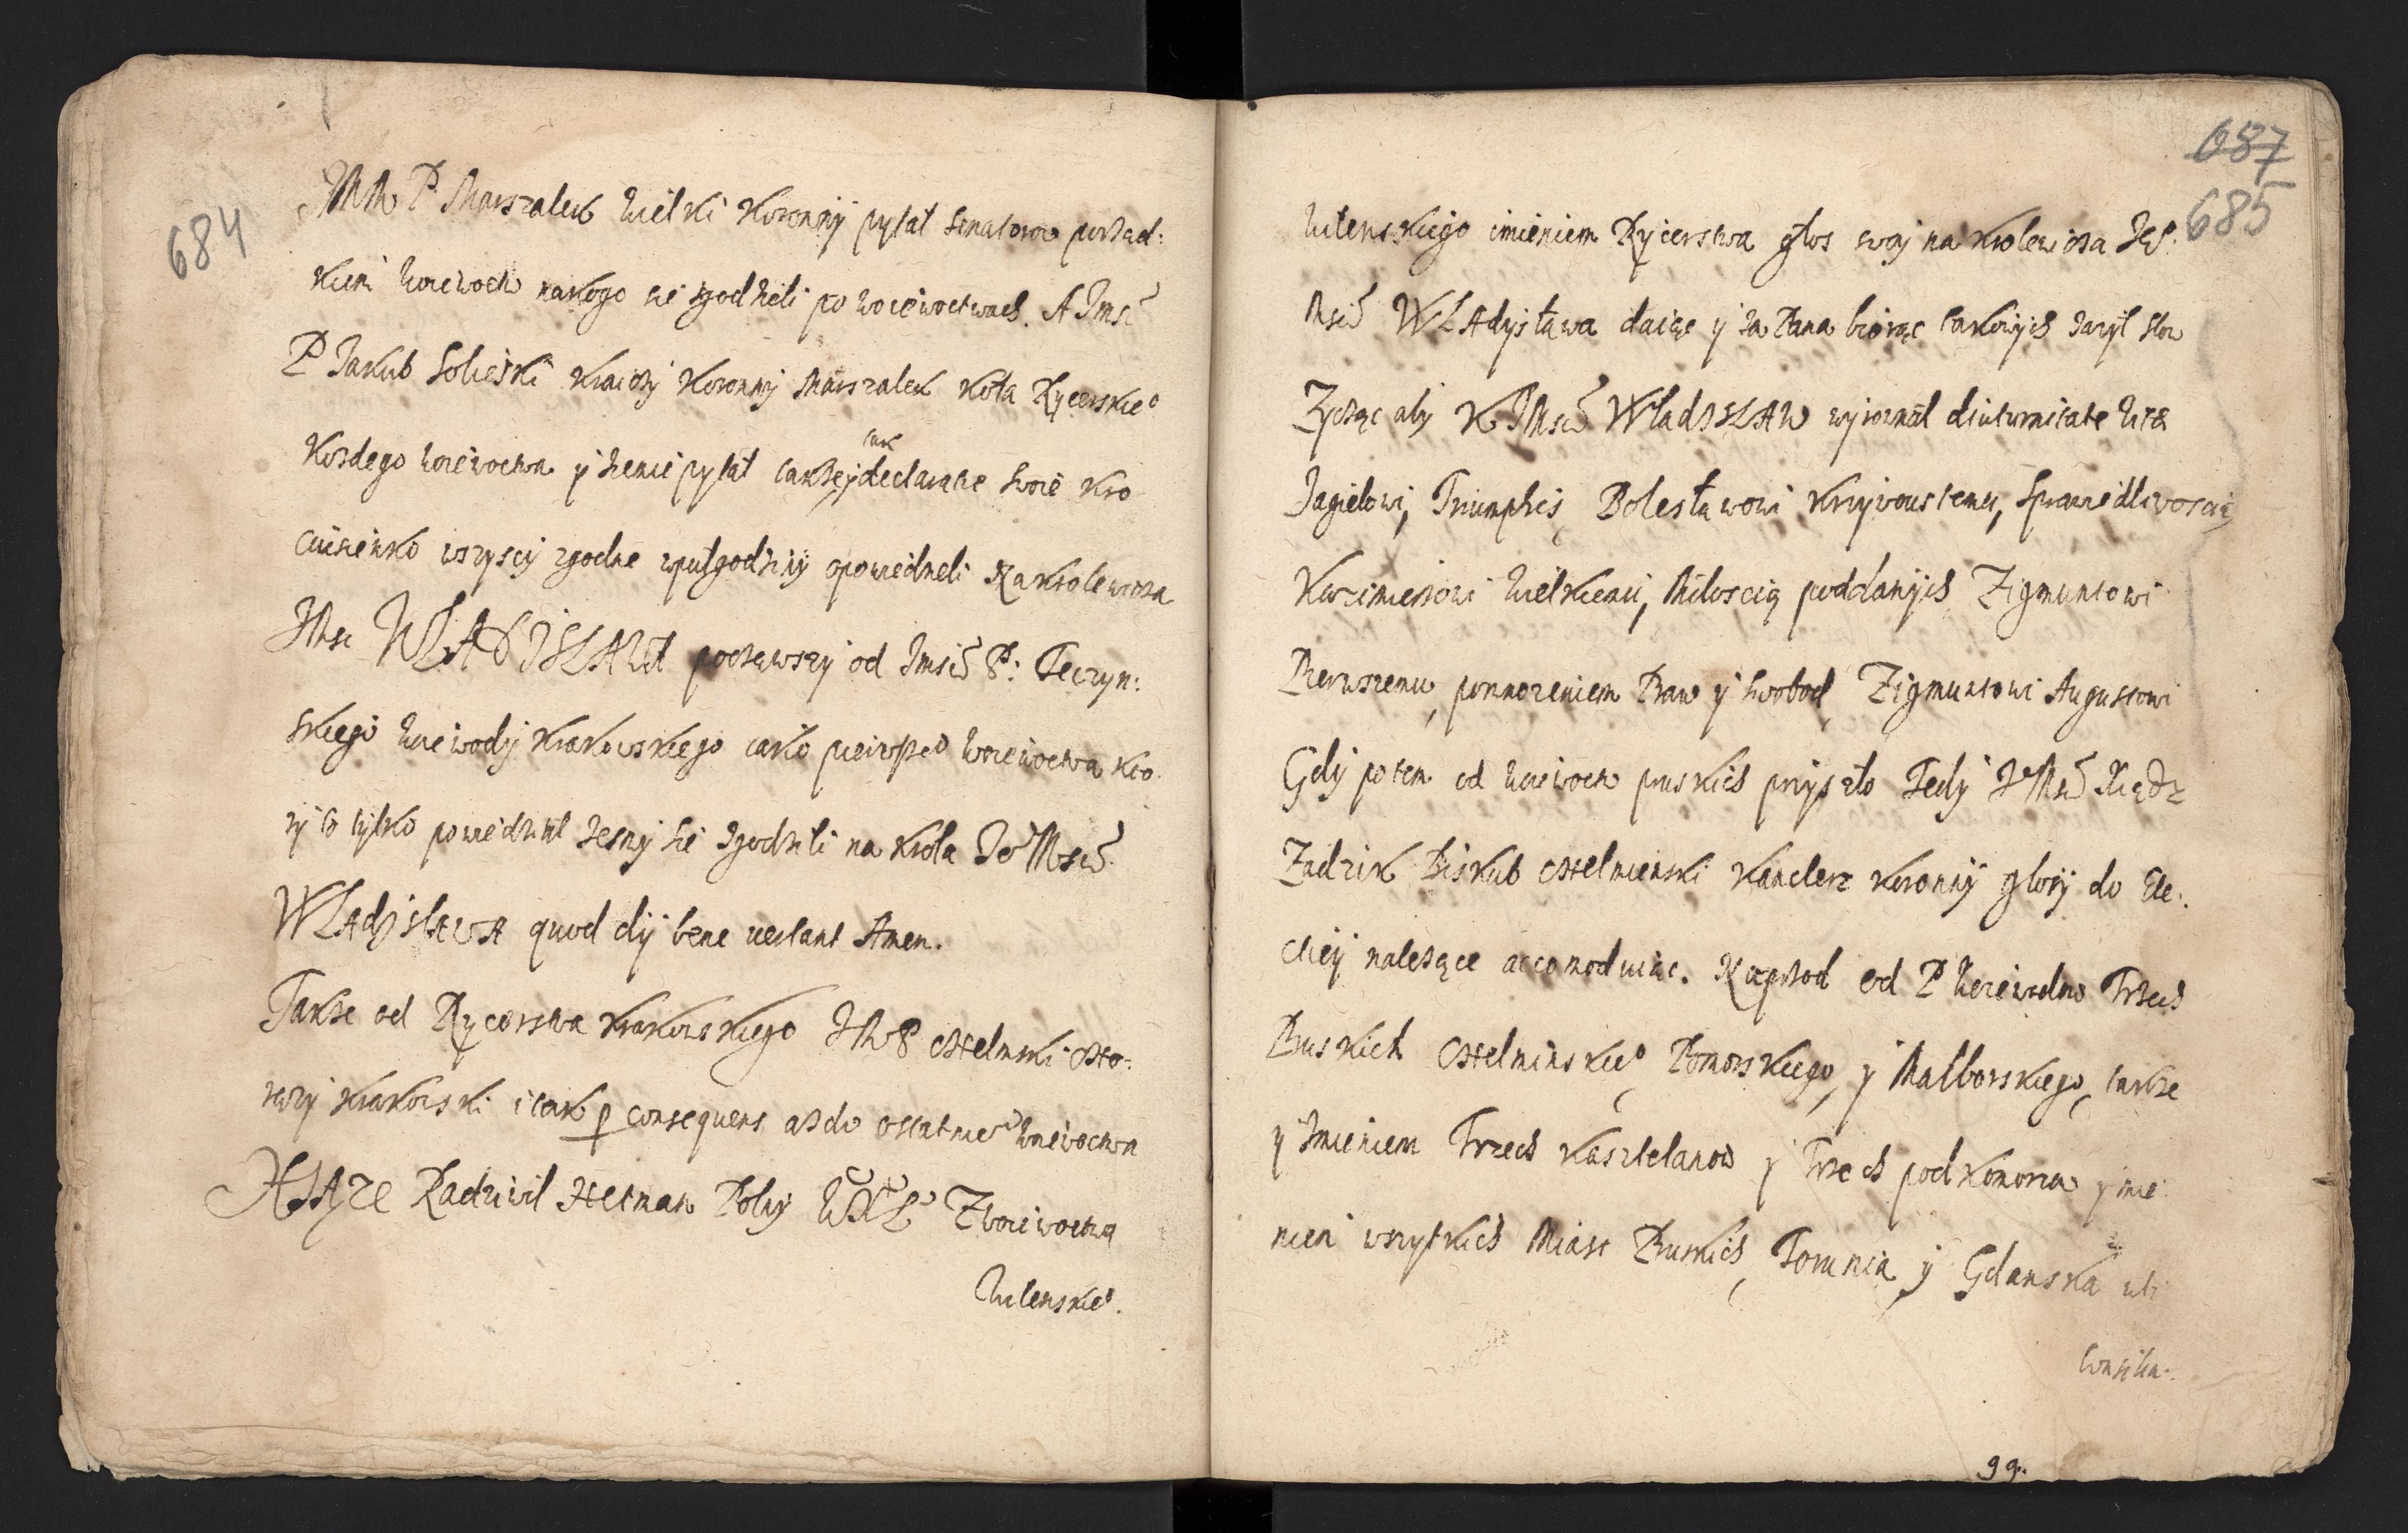 684
JMM P. Marszalek Wielki Koronnÿ pÿtał Senatorow porząd:
kiem Woiewodz nakogo się zgodzieli po woiewoctwach. A Jmsć
P Jakub Sobieski Kraiczÿ Koronnÿ Marszalek Koła Rÿcerskie°
Kozdego woiewoctwa ÿ ziemie pÿtał takze ÿ declaratie swoie kro
tak
ciusienko wszÿscÿ zgodnie wpułgodzinÿ opowiedzieli Na Krolewicza
JMsc WLADISLAWA począwszÿ od Jmści P: Tęczÿn:
skiego Woiewodÿ Krakowskiego iako pierwsze° Woiewoctwa kto
rÿ to tÿlko powiedział Jesmÿ się zgodzili na Krola Je° Msci
WLAdÿslAwA quod dÿ bene vertant Amen.
Takze od Rÿcerstwa Krakowskiego JMP Chelmski Cho:
rązÿ Krakowski i tak p consequens asz do ostatnie° Woiewoctwa
XIĄZe Radziwil Hetman Polnÿ WXL° Z Woiewoctwa
Wilenskie°.
687
685
Wilenskiego imieniem Rÿcerstwa głos swoÿ na Krolewicza Je°.
Msci WLAdÿsława daiąc ÿ za Pana biorąc takowÿch zazÿł słow
Zÿcząc abÿ K JMsci WładÿSLAW wÿrownał diuturnitate vitæ
Jagiełowi, Triumphis Bolesławowi Krzÿwoustemu, Sprawiedliwoscią
Kazimierzowi Wielkiemu, Miłoscią poddanÿch Zigmuntowi
Pierwszemu, pomnozeniem Praw ÿ swobod, Zigmuntowi Augustowi
Gdÿ potem od Woiewoctw pruskich przÿszło Tedÿ JeMsć Xiądz
Zadzik Biskub Chelmienski Kanclerz Koronnÿ głosÿ do Ele:.
ctieÿ nalezące accomoduiąc. Naprzod od P Woiewodow Trzech
Pruskich Chelminskie°, Pomorskiego, ÿ Malborskiego, takze
ÿ Jmieniem Trzech Kasztelanow ÿ Trzech podkomorzÿ ÿ mie
niem wszÿtkich Miast Pruskich, Torunia, ÿ Gdanska ubi
Consilia:.
99.